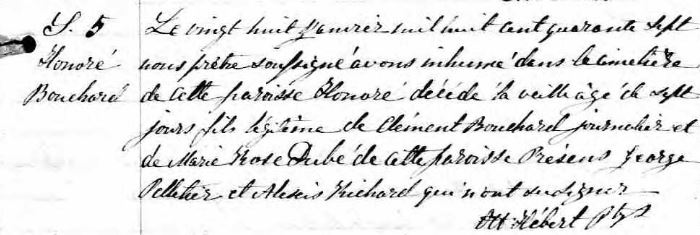 S. 5
Honoré
Bouchard
Le vingt huit janvier mil huit cent quarante sept
nous prêtre soussigné avons inhumé dans le cimetière
de cette paroisse Honoré décédé la veille âgé de sept
jours fils légitime de Clément Bouchard journalier et
de Marie Rose Dubé de cette paroisse Présens George
Pelletier et Alexis Richard qui n'ont su signer
Hébert Ptre